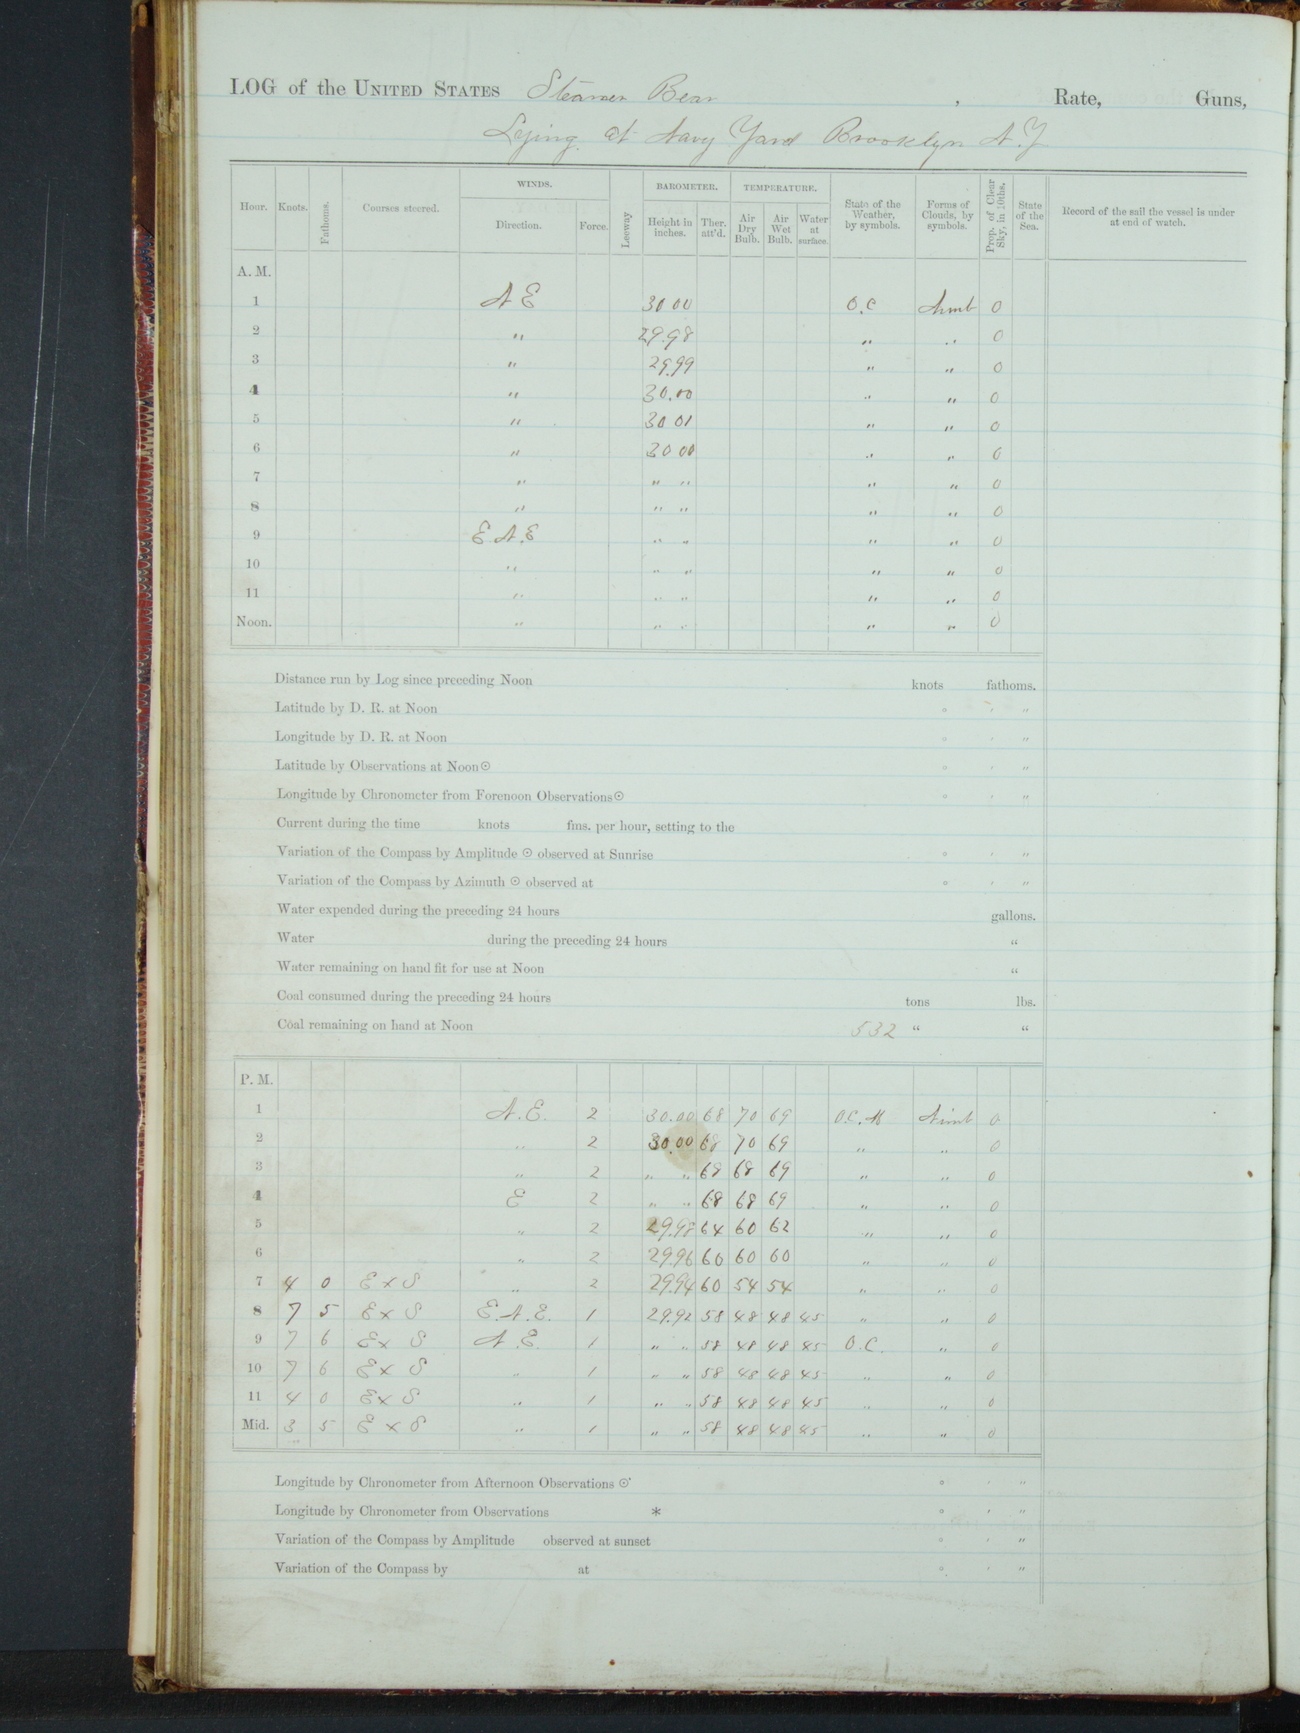 LOG of the UNITED STATES Steamer Bear , Rate, Guns,
Lying at Navy Yard Brooklyn N.Y.
Hour. Knots. Fathoms. Courses steered. WINDS. Direction. Force. Leeway BAROMETER. Height in inches. Ther. att'd. TEMPERATURE. Air Dry Bulb. Air Wet Bulb. Water at surface. State of the Weather, by symbols. Forms of Clouds, by symbols. Prop. of Clear Sky, in 10ths. State of the Sea. Record of the sail the vessel is under at end of watch.
A. M.
1 N E 30 00 O.C Nimb 0
2 " 29.98 " " 0
3 " 29.99 " " 0
4 " 30.00 " " 0
5 " 30 01 " " 0
6 " 30 00 " " 0
7 " " " " " 0
8 " " " " " 0
9 E N.E " " " " 0
10 " " " " " 0
11 " " " " " 0
Noon. " " " " " 0
Distance run by Log since preceding Noon knots fathoms.
Latitude by D. R. at Noon ° ' "
Longitude by D. R. at Noon ° ' "
Latitude by Observations at Noon☉ ° ' "
Longitude by Chronometer from Forenoon Observations☉ ° ' "
Current during the time knots fms. per hour, setting to the
Variation of the Compass by Amplitude ☉ observed at Sunrise ° ' "
Variation of the Compass by Azimuth ☉ observed at ° ' "
Water expended during the preceding 24 hours gallons.
Water during the preceding 24 hours "
Water remaining on hand fit for use at Noon "
Coal consumed during the preceding 24 hours tons lbs.
Coal remaining on hand at Noon 532 " "
P. M.
1 N.E. 2 30.00 68 70 69 O.C.M Nimb 0
2 " 2 30.00 68 70 69 " " 0
3 " 2 " " 68 68 69 " " 0
4 E 2 " " 68 68 69 " " 0
5 " 2 29.98 64 60 62 " " 0
6 " 2 29.96 60 60 60 " " 0
7 4 0 E x S " 2 29.94 60 54 54 " " 0
8 7 5 E x S E.N.E. 1 29.92 58 48 48 45 " " 0
9 7 6 E x S N.E. 1 " " 58 48 48 45 O.C. " 0
10 7 6 E x S " 1 " " 58 48 48 45 " " 0
11 4 0 E x S " 1 " " 58 48 48 45 " " 0
Mid. 3 5 E x S " 1 " " 58 48 48 45 " " 0
Longitude by Chronometer from Afternoon Observations ☉ ° ' "
Longitude by Chronometer from Observations * ° ' "
Variation of the Compass by Amplitude observed at sunset ° ' "
Variation of the Compass by at ° ' "